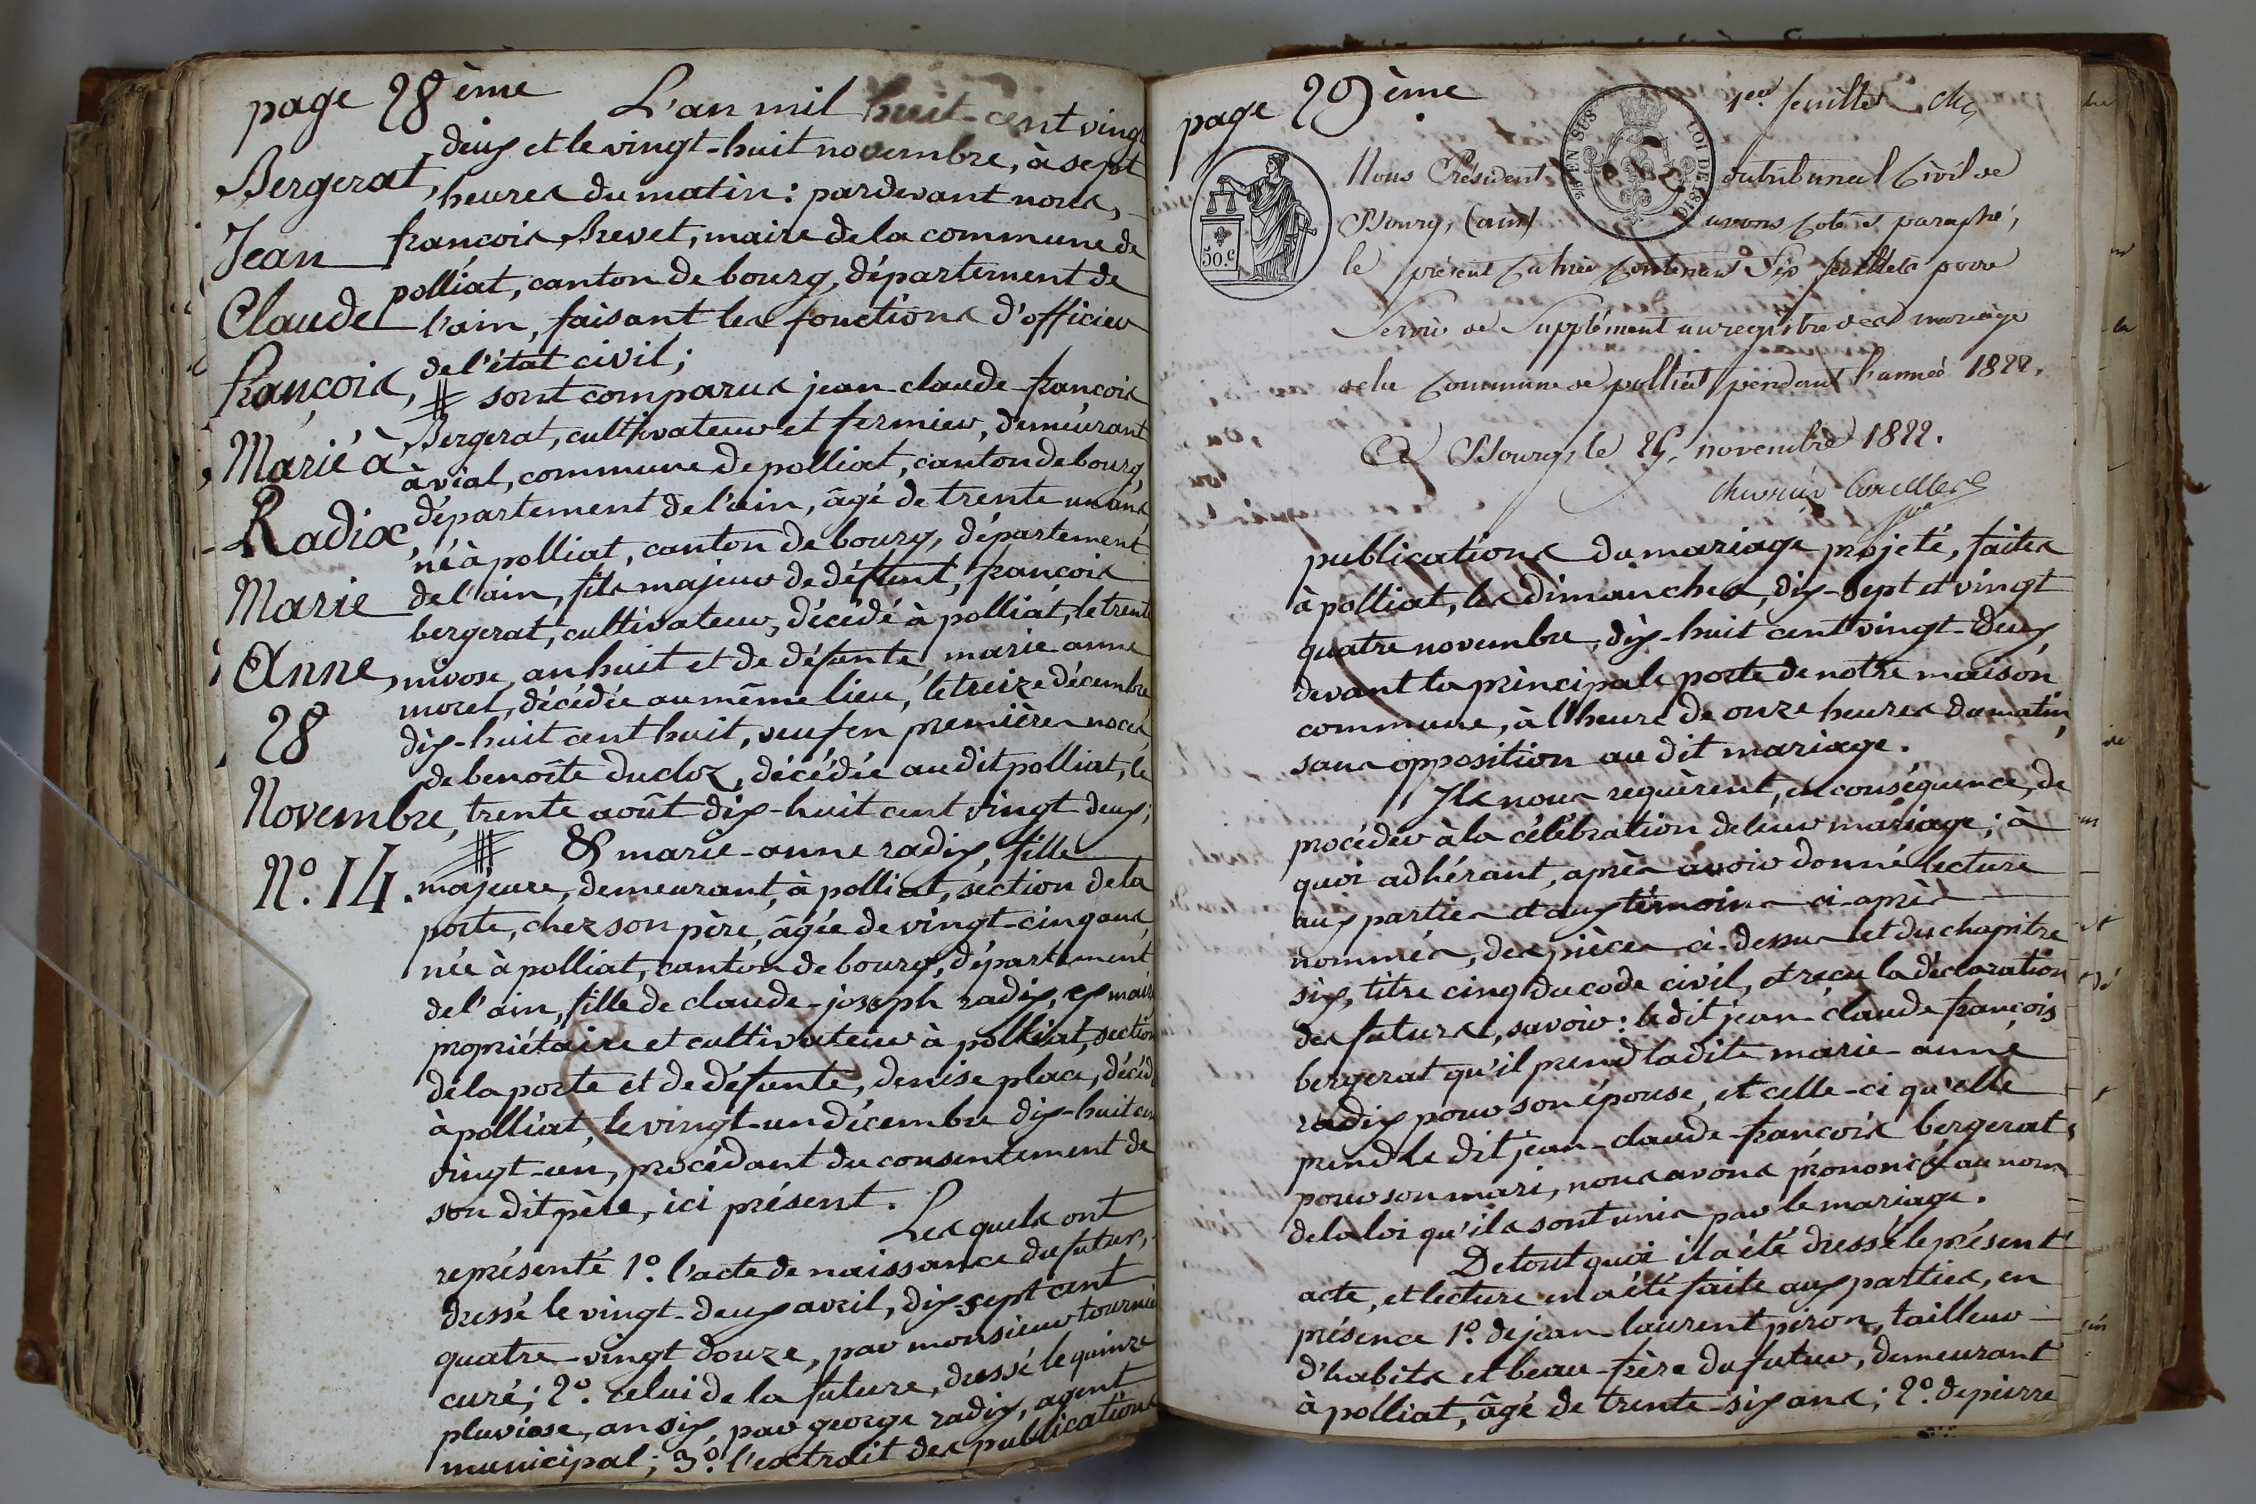 page 28ème
L'an mil huit-cent vingt
deux et le vingt-huit novembre, à sept
heures du matin: pardevant nous,
françois Brevet, maire de la commune de
polliat, canton de bourg, département de
l'ain, faisant les fonctions d'officier
de l'état civil;
sont comparus jean-claude-françois
Bergerat, cultivateur et fermier, demeurant
à vial, commune de polliat, canton de bourg,
département de l'ain, âgé de trente un ans,
né à polliat, canton de bourg, département
de l'ain, fils majeur de défunt, françois
bergerat, cultivateur, décédé à polliat, le trente
nivose, an huit et de défunte, marie anne
morel, décédée au même lieu, le treize décembre
dix-huit cent huit, veuf en premières noces,
de benoîte ducloz, décédée au dit polliat, le
trente août dix-huit cent vingt-deux;
& marie-anne radix, fille
majeure, demeurant, à polliat, section de la
poste, chez son père, âgée de vingt-cinq ans,
née à polliat, canton de bourg, département
de l'ain, fille de claude-joseph radix, ex maire
propriétaire et cultivateur à polliat, section
de la poste et de défunte, denise place, décédée
à polliat, le vingt-un décembre dix-huit cent
vingt-un, procédant du consentement de
son dit père, ici présent.
Les quels ont
représenté 1º. l'acte de naissance du futur,
dressé le vingt-deux avril, dix-sept cent
quatre-vingt douze, par monsieur tournier
curé; 2º. celui de la future, dressé le quinze
pluviose, an six, par george radix, agent
municipal; 3º. l'extrait des publications
Bergerat,
Jean
Claude
françois,
Marié à
Radix
Marie
Anne,
28
Novembre,
Nº. 14.
page 29ème
1er. feuillet
2e EN SUS LOI DE 1816
50.c
Nous Président du tribunal Civil de
Bourg, (ain) avons Coté et paraphé,
le présent Cahier Contenant Six feuillets pour
Servir de Supplément au registre des mariage
de la Commune de polliat pendant l'année 1822.
A Bourg, le 25. novembre 1822.
publications du mariage projeté, faites
à polliat, les dimanches, dix-sept et vingt
quatre novembre, dix-huit cent vingt-deux,
devant la principale porte de notre maison
commune, à l'heure de onze heures du matin,
sans opposition au dit mariage.
Ils nous requièrent, en conséquence, de
procéder à la célébration de leur mariage; à
quoi adhérant, après avoir donné lecture
aux parties et aux témoins ci-après
nommés, des pièces ci-dessus et du chapitre
six, titre cinq du code civil, et reçu la déclaration
des futurs, savoir: le dit jean-claude françois
bergerat qu'il prend ladite marie-anne
radix pour son épouse, et celle-ci qu'elle
prend le dit jean-claude-françois bergerat,
pour son mari, nous avons prononcé au nom
de la loi qu'ils sont unis par le mariage.
De tout quoi il a été dressé le présent
acte, et lecture en a été faite aux parties, en
présence 1º. de jean-laurent piron, tailleur
d'habits et beau-frère du futur, demeurant
à polliat, âgé de trente-six ans; 2º. de pierre